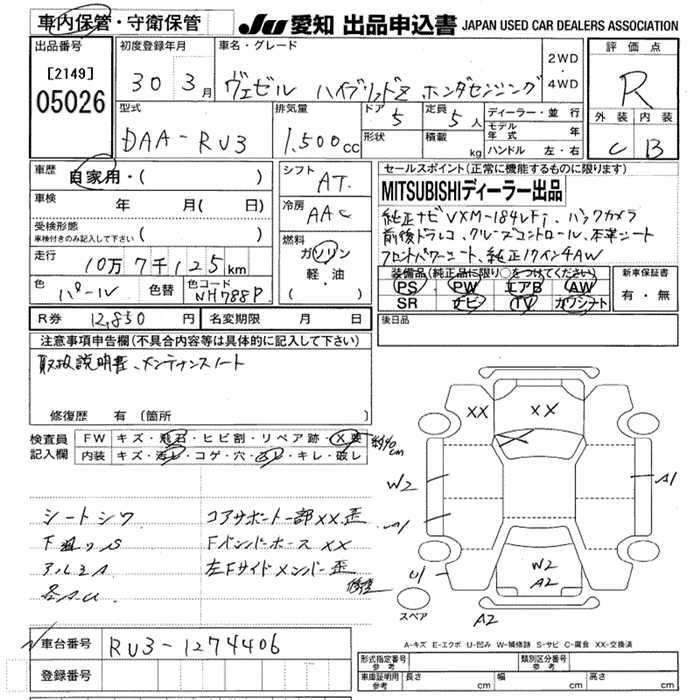 車内保管・守衛保管
JU 愛知 出品申込書 JAPAN USED CAR DEALERS ASSOCIATION
出品番号 [2149] 05026
初度登録年月 30年 3月
車名・グレード ヴェゼル ハイブリッドZ ホンダセンシング
2WD・4WD
評価点 R
外装 C 内装 B
型式 DAA-RU3
排気量 1,500cc
ドア 5 定員 5人
形状 積載 kg
ディーラー・並行
モデル年式 年
ハンドル 左・右
車歴 自家用・( )
車検 年 月( 日)
受検形態 車検付きのみ記入して下さい ( )
走行 10万7千125km
色 パール 色替 色コード NH788P
シフト AT
冷房 AAC
燃料 ガソリン 軽・油 ( )
セールスポイント(正常に機能するものに限ります)
MITSUBISHIディーラー出品
純正ナビVXM-184VFi、バックカメラ
前後ドラレコ、クルーズコントロール、本革シート
フロントパワーシート、純正17インチAW
装備品(純正品に限り○をつけてください)
PS PW エアB AW
SR ナビ TV カワシート
新車保証書 有・無
R券 12,850円 名変期限 月 日
後日品
注意事項申告欄(不具合内容等は具体的に記入して下さい)
取扱説明書、メンテナンスノート
修復歴 有〔箇所
検査員記入欄
FW キズ・飛石・ヒビ割・リペア跡・X要 約40cm
内装 キズ・汚レ・コゲ・穴・スレ・キレ・破レ
シートシワ コアサポート一部XX、歪
下廻りS Fバンパーホース XX
アルミA 左Fサイドメンバー歪
修理
各A.U
XX
XX
W2
A1
A1
U1
W2
A2
A2
スペア
A-キズ E-エクボ U-凹み W-補修跡 S-サビ C-腐食 XX-交換済
車台番号 RU3-1274406
登録番号
形式指定番号 参考 類別区分番号 参考
車庫証明用 参考 長さ cm 幅 cm 高さ cm